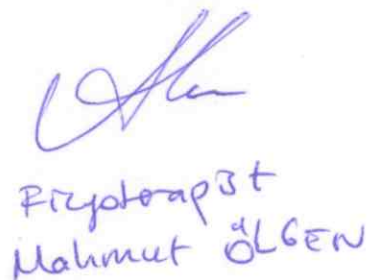 Fizyoterapist
Mahmut ÖLGEN